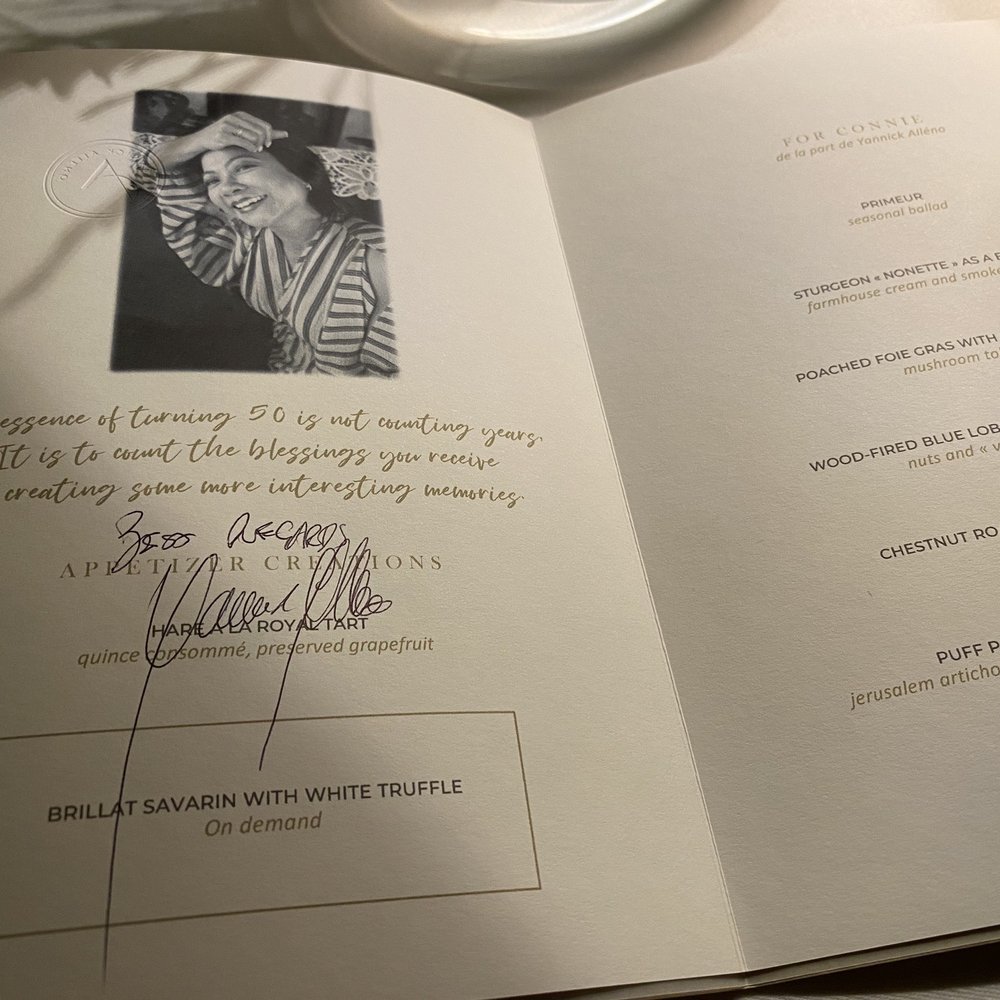 essence of turning 50 is not counting years.
It is to count the blessings you receive
creating some more interesting memories.
BEST REGARDS
APPETIZER CREATIONS
HARE A LA ROYAL TART
quince consommé, preserved grapefruit
BRILLAT SAVARIN WITH WHITE TRUFFLE
On demand
FOR CONNIE
de la part de Yannick Alléno
PRIMEUR
seasonal ballad
STURGEON « NONETTE » AS A
farmhouse cream and smoke
POACHED FOIE GRAS WITH
mushroom
WOOD-FIRED BLUE LOB
nuts and «
CHESTNUT RO
PUFF P
jerusalem articho